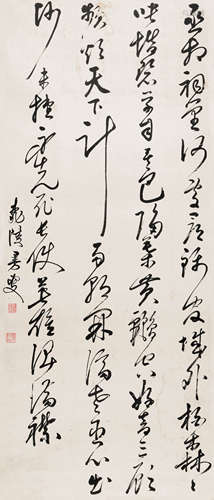 丞相祠堂何處尋錦官城外柏森々
映階碧草自春色隔葉黃鸝空好音三顧
頻煩天下計兩朝開濟老臣心出
師未捷身先死長使英雄淚滿襟